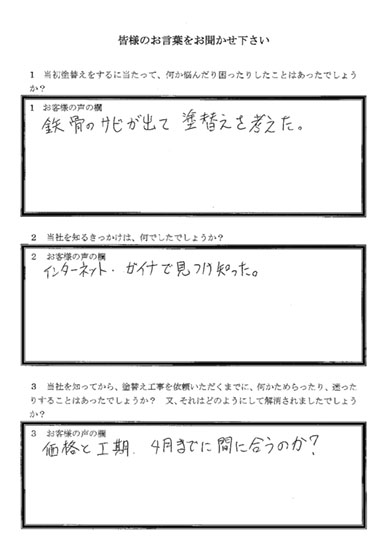 皆様のお言葉をお聞かせ下さい
1 当初塗替えをするに当たって、何か悩んだり困ったりしたことはあったでしょう
か？
1 お客様の声の欄
鉄骨のサビが出て 塗替えを考えた。
2 当社を知るきっかけは、何でしたでしょうか？
2 お客様の声の欄
インターネット・ガイナで見つけ知った。
3 当社を知ってから、塗替え工事を依頼いただくまでに、何かためらったり、迷った
りすることはあったでしょうか？ 又、それはどのようにして解消されましたでしょう
か？
3 お客様の声の欄
価格と工期. 4月までに間に合うのか?